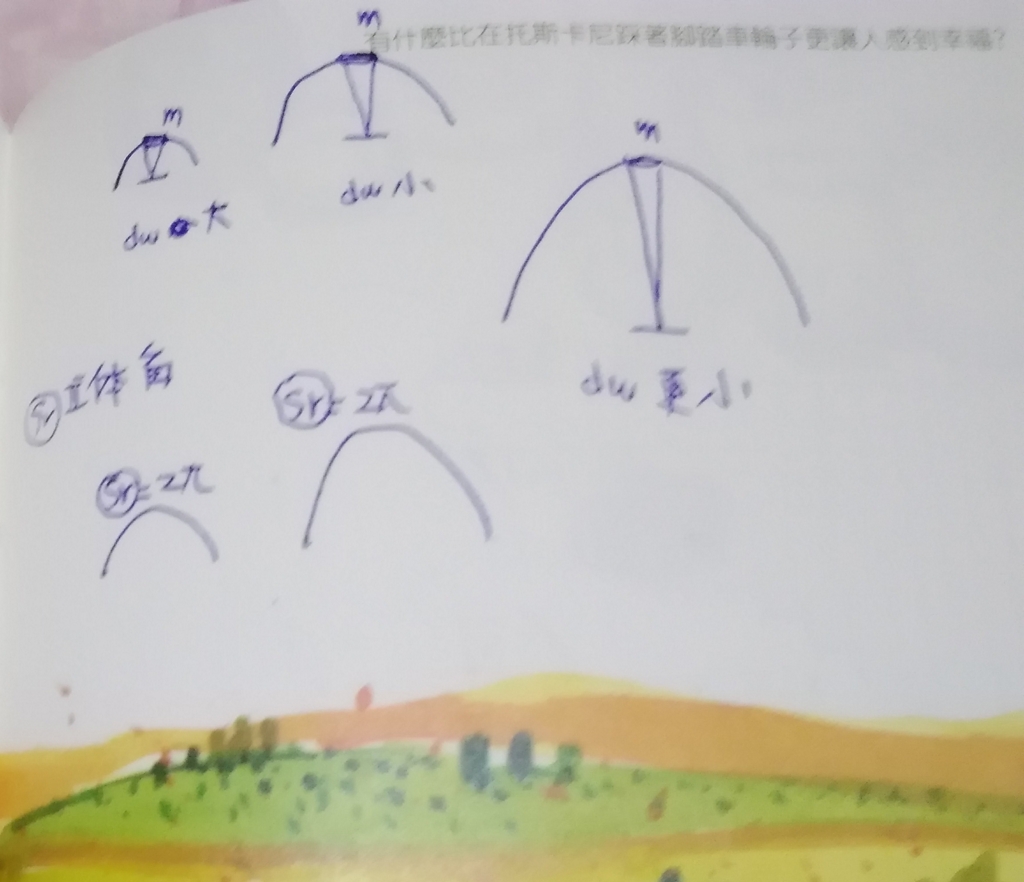 有什麼比在托斯卡尼踩著腳踏車輪子更讓人感到幸福?
m
m
m
dw 大
dw 小
dw 更小
Sr 立体角
Sr = 2π
Sr = 2π